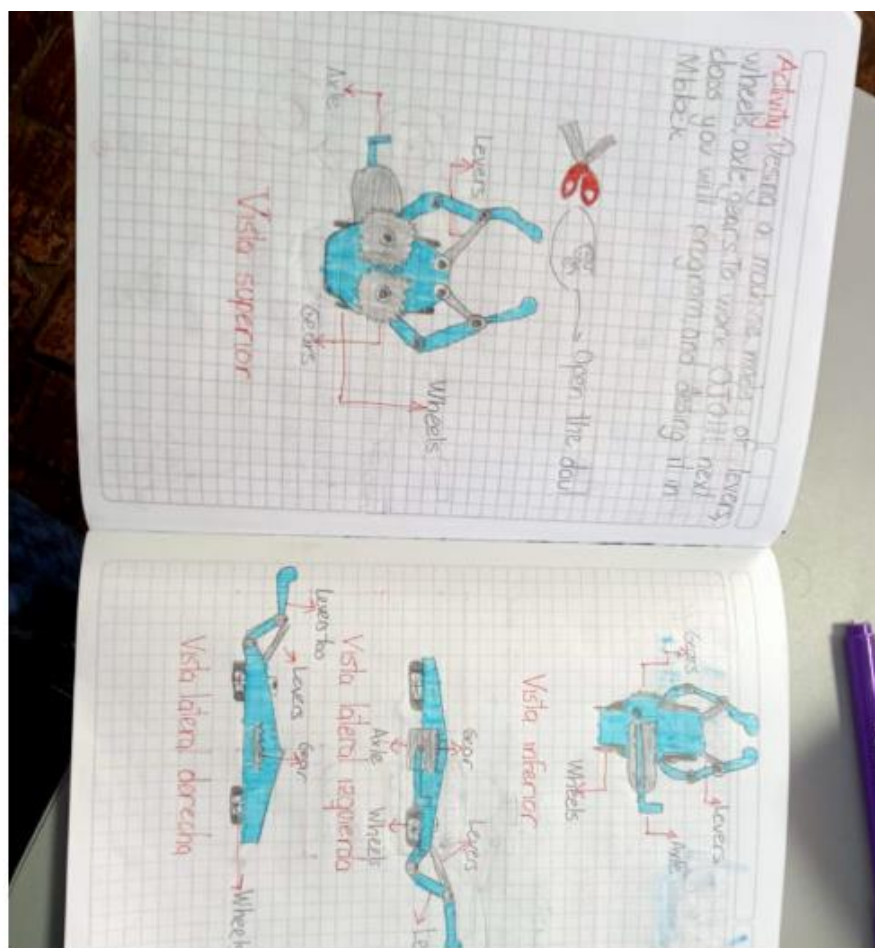 Activity: Desing a
wheels, axle, gears to work
class you will program and desing it in
Mblock
Open the
Levers
Axle
Gears
Wheels
Vista superior
Gears
Levers
Axle
Wheels
Vista inferior
Levers
Gear
Axle
Wheels
Vista lateral izquierda
Levers too
Levers
Gear
Vista lateral derecha